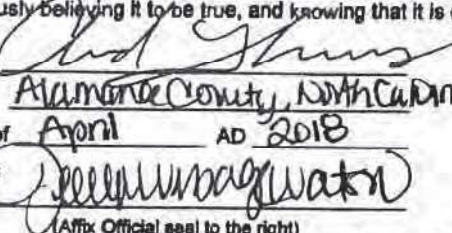 usly believing it to be true, and knowing that it is
Alamance County, North Carolin
of April AD 2018
(Affix Official seal to the right)